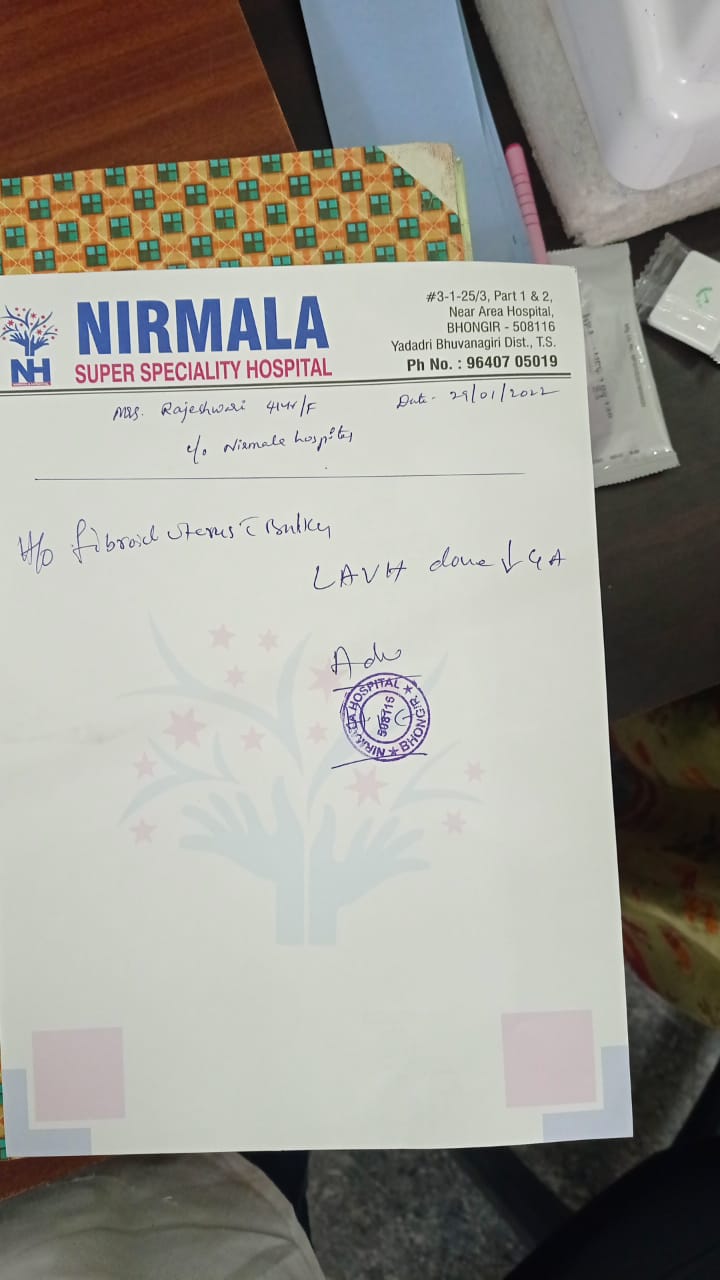 NIRMALA
SUPER SPECIALITY HOSPITAL
NH
#3-1-25/3, Part 1 & 2,
Near Area Hospital,
BHONGIR - 508116
Yadadri Bhuvanagiri Dist., T.S.
Ph No. : 96407 05019
Mrs. Rajeshwari 41yr/F
Date- 29/01/2022
c/o Nirmala hospital
H/o fibroid uterus c̄ Bulky
LAVH done ↓ GA
Adv
NIRMALA HOSPITAL ★ BHONGIR ★
508116